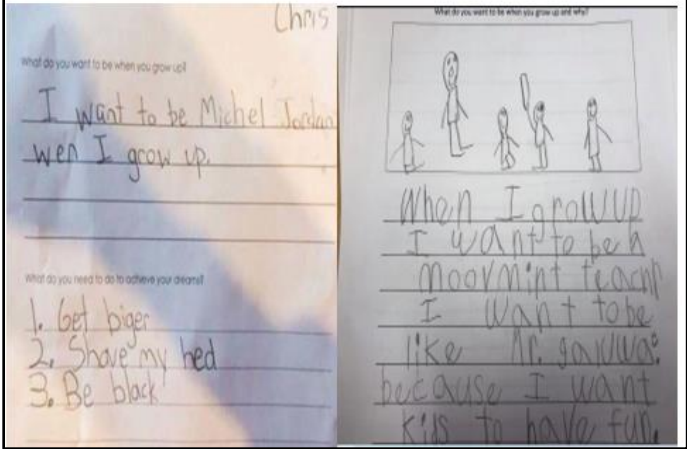 Chris
What do you want to be when you grow up?
I want to be Michel Jordan
wen I grow up.
What do you need to do to achieve your dreams?
1. Get biger
2. Shave my hed
3. Be black
What do you want to be when you grow up and why?
When I grow up
I want to be a
moovmint teachr
I want to be
like Mr.
because I want
kids to have fun.